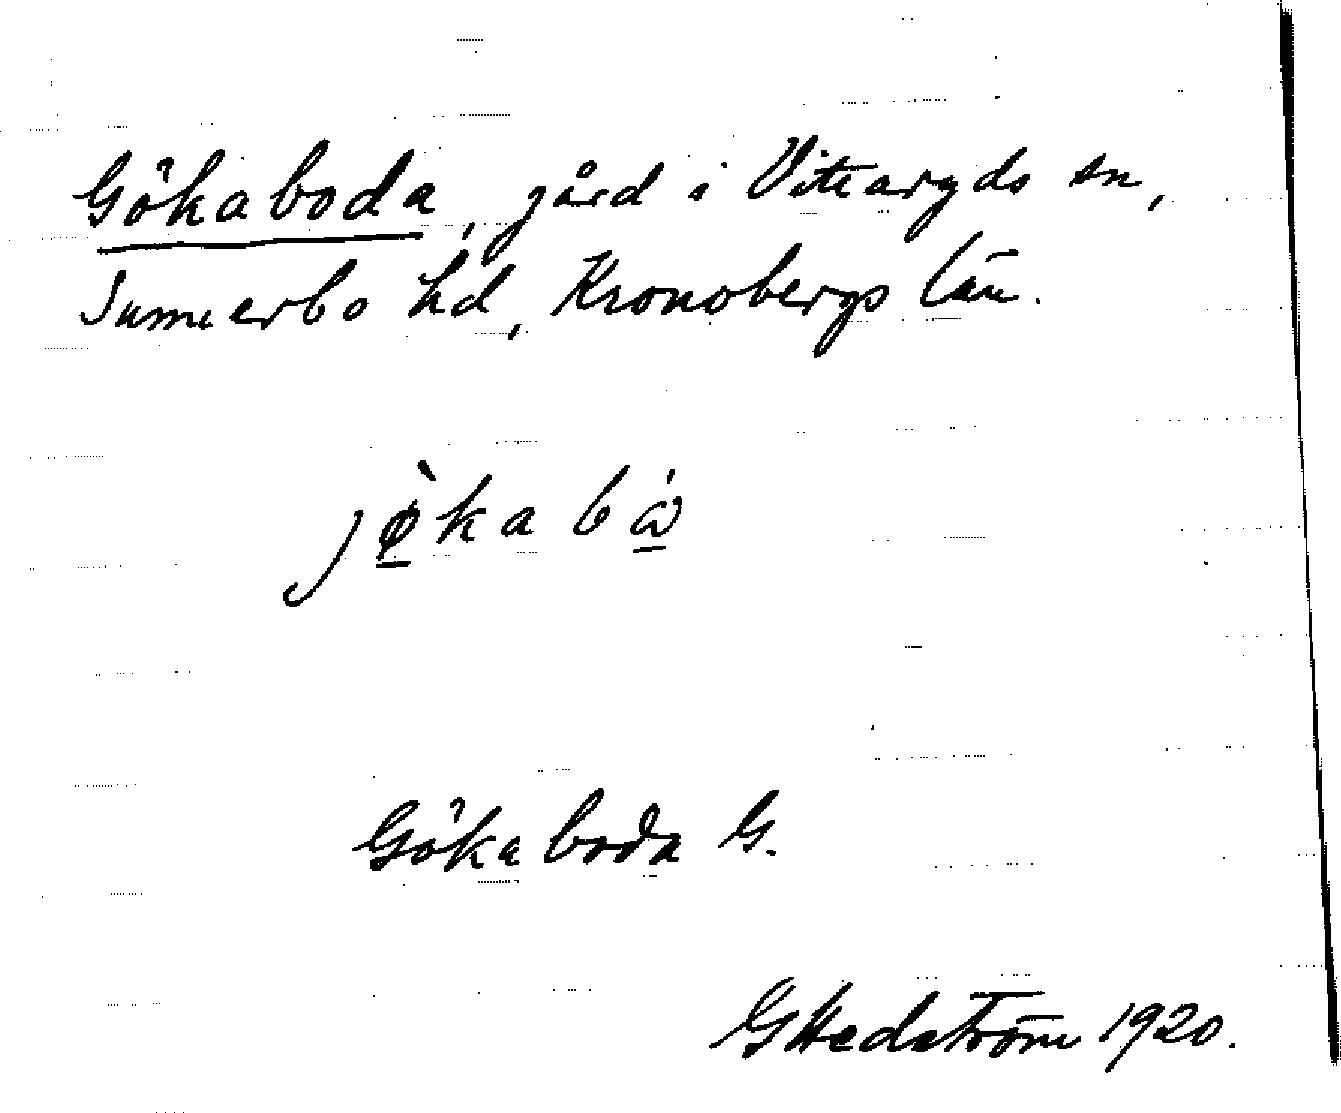 Gökaboda, gård i Vittaryds sn,
Sunnerbo hd, Kronobergs län.
jø̀kabǻ
Gökaboda G.
GHedström 1920.